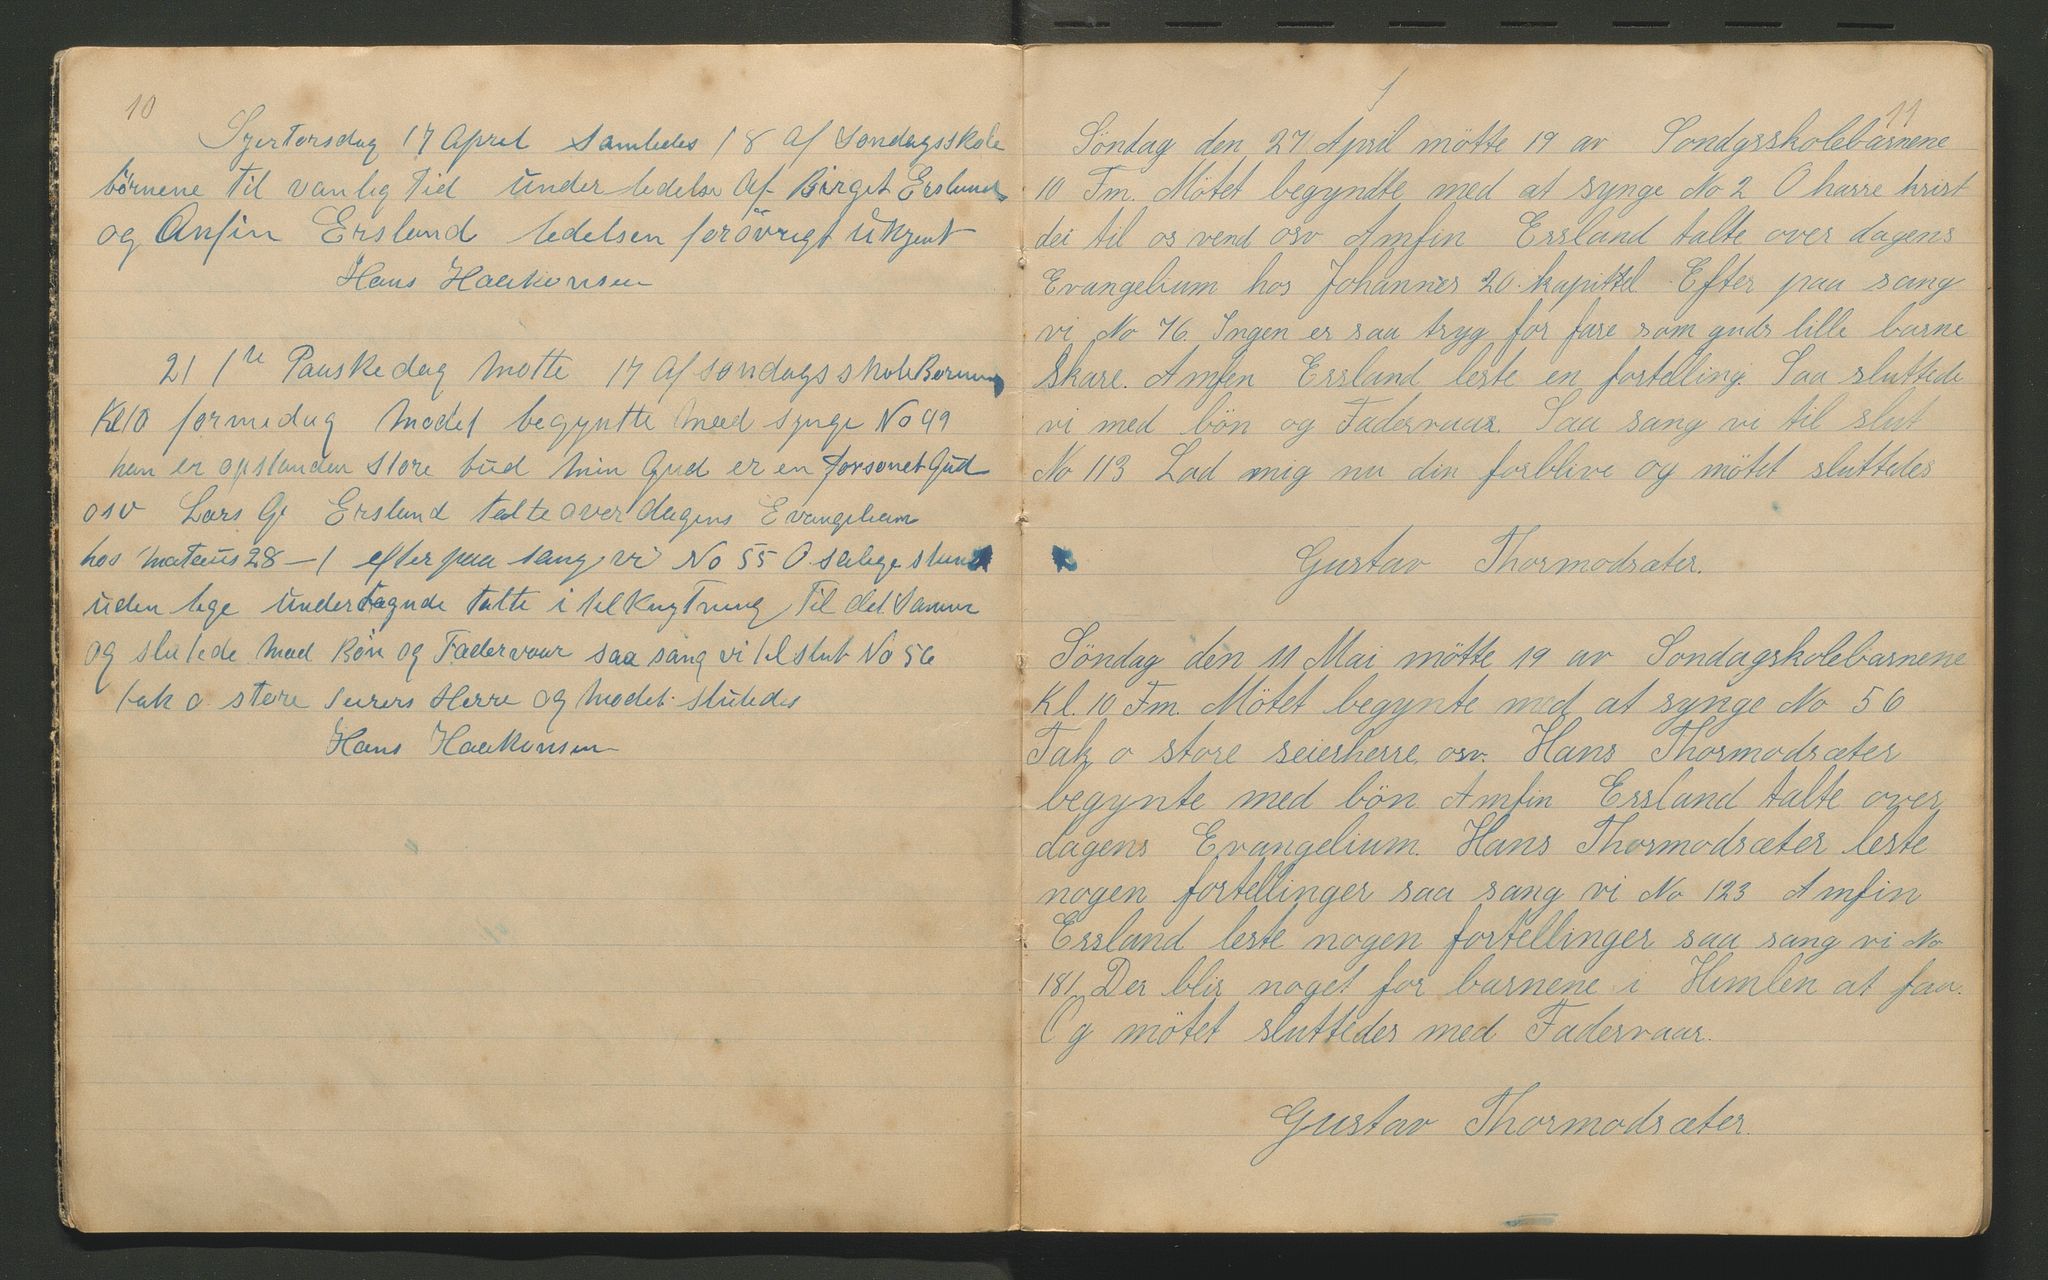 10
Sjertorsdag 17 April samledes 18 af Søndagsskole
börnene til vanlig tid under ledelse af Birget Ersland
og Anfin Ersland ledelsen forövrigt ukjent
Hans Haakonsen
21 1re Paaskedag møtte 17 af søndagsskole Børnene
Kl 10 formedag mødet begyntte med synge No 49
han er opstanden store bud min Gud er en forsonet Gud
osv Lars G Ersland talte over dagens Evangelium
hos mataus 28 – 1 efter paa sang vi No 55 O salige stund
uden lige undertegnede talte i tilknytning til det samme
og slutede med Bön og Fadervaar saa sang vi til slut No 56
tak o store seiers Herre og mødet slutedes
Hans Haakonsen
11
Söndag den 27 April mötte 19 av Sondgsskolebarnene
10 Fm. Mötet begyndte med at synge No 2 O harre krist
dei til os vend osv Amfin Ersland talte over dagens
Evangelium hos Johannes 20. kapittel Efter paa sang
vi No 76. Ingen er saa tryg for fare som guds lille barne
skare. Amfen Ersland leste en fortelling. Saa sluttede
vi med bön og Fadervaar. Saa sang vi til slut
No 113 Lad mig nu din forblive og mötet sluttedes
Gustav Thormodsæter.
Söndag den 11 Mai mötte 19 av Sondagskolebarnene
Kl. 10 Fm. Mötet begynte med at synge No 56
Tak o store seierherre osv. Hans Thormodsæter
begynte med bön Amfin Ersland talte over
dagens Evangelium. Hans Thormodsæter leste
nogen fortellinger saa sang vi No 123 Amfin
Ersland leste nogen fortellinger saa sang vi No
181 Der blir noget for barnene i Himlen at faa.
Og mötet sluttedes med Fadervaar.
Gustav Thormodsæter.